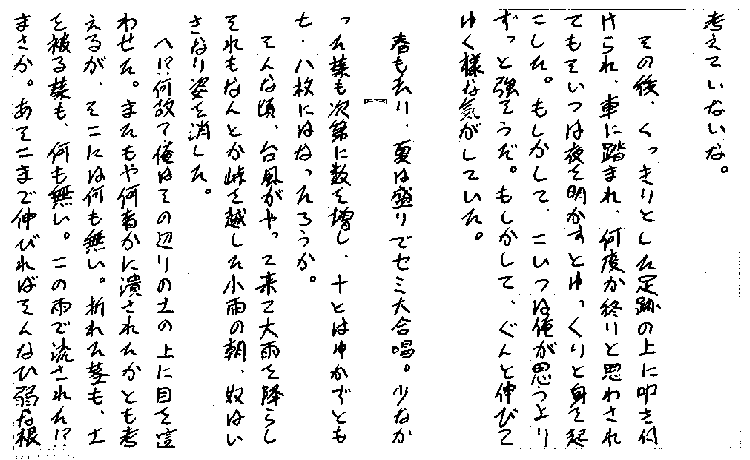 考えていないな。
その後、くっきりとした足跡の上に叩き付
けられ、車に踏まれ、何度か終りと思わされ
てもそいつは夜を明かすとゆっくりと身を起
こした。もしかして、こいつは俺が思うより
ずっと強そうだ。もしかして、ぐんと伸びて
ゆく様な気がしていた。
春も去り、夏は盛りでセミ大合唱。少なか
った葉も次第に数を増し、十とはゆかずとも
七・八枚にはなったろうか。
そんな頃、台風がやって来て大雨を降らし
それもなんとか峠を越した小雨の朝、奴はい
きなり姿を消した。
へ!?何故て俺はその辺りの土の上に目を這
わせた。またもや何者かに潰されたかとも考
えるが、そこには何も無い。折れた茎も、土
を被る葉も、何も無い。この雨で流された!?
まさか。あそこまで伸びればそんなひ弱な根